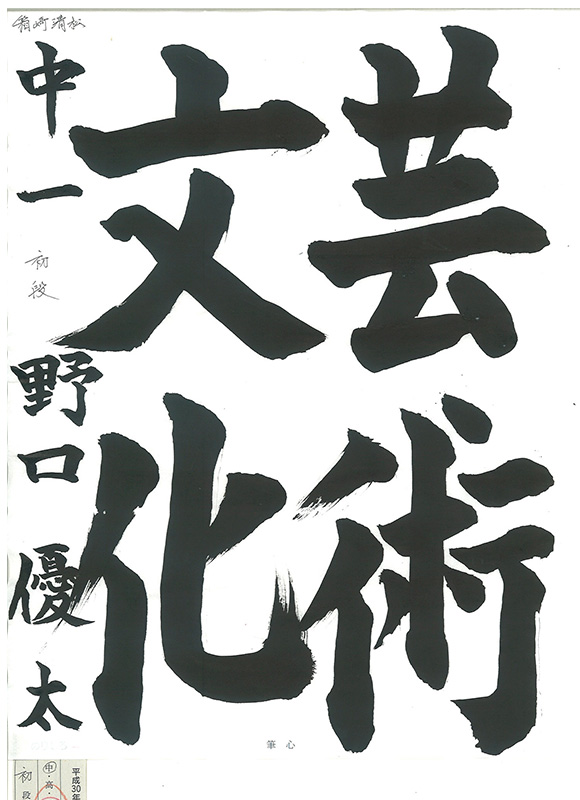 芸術
文化
中一
初段
野口優太
筆心
平成30年
中・高・
初段